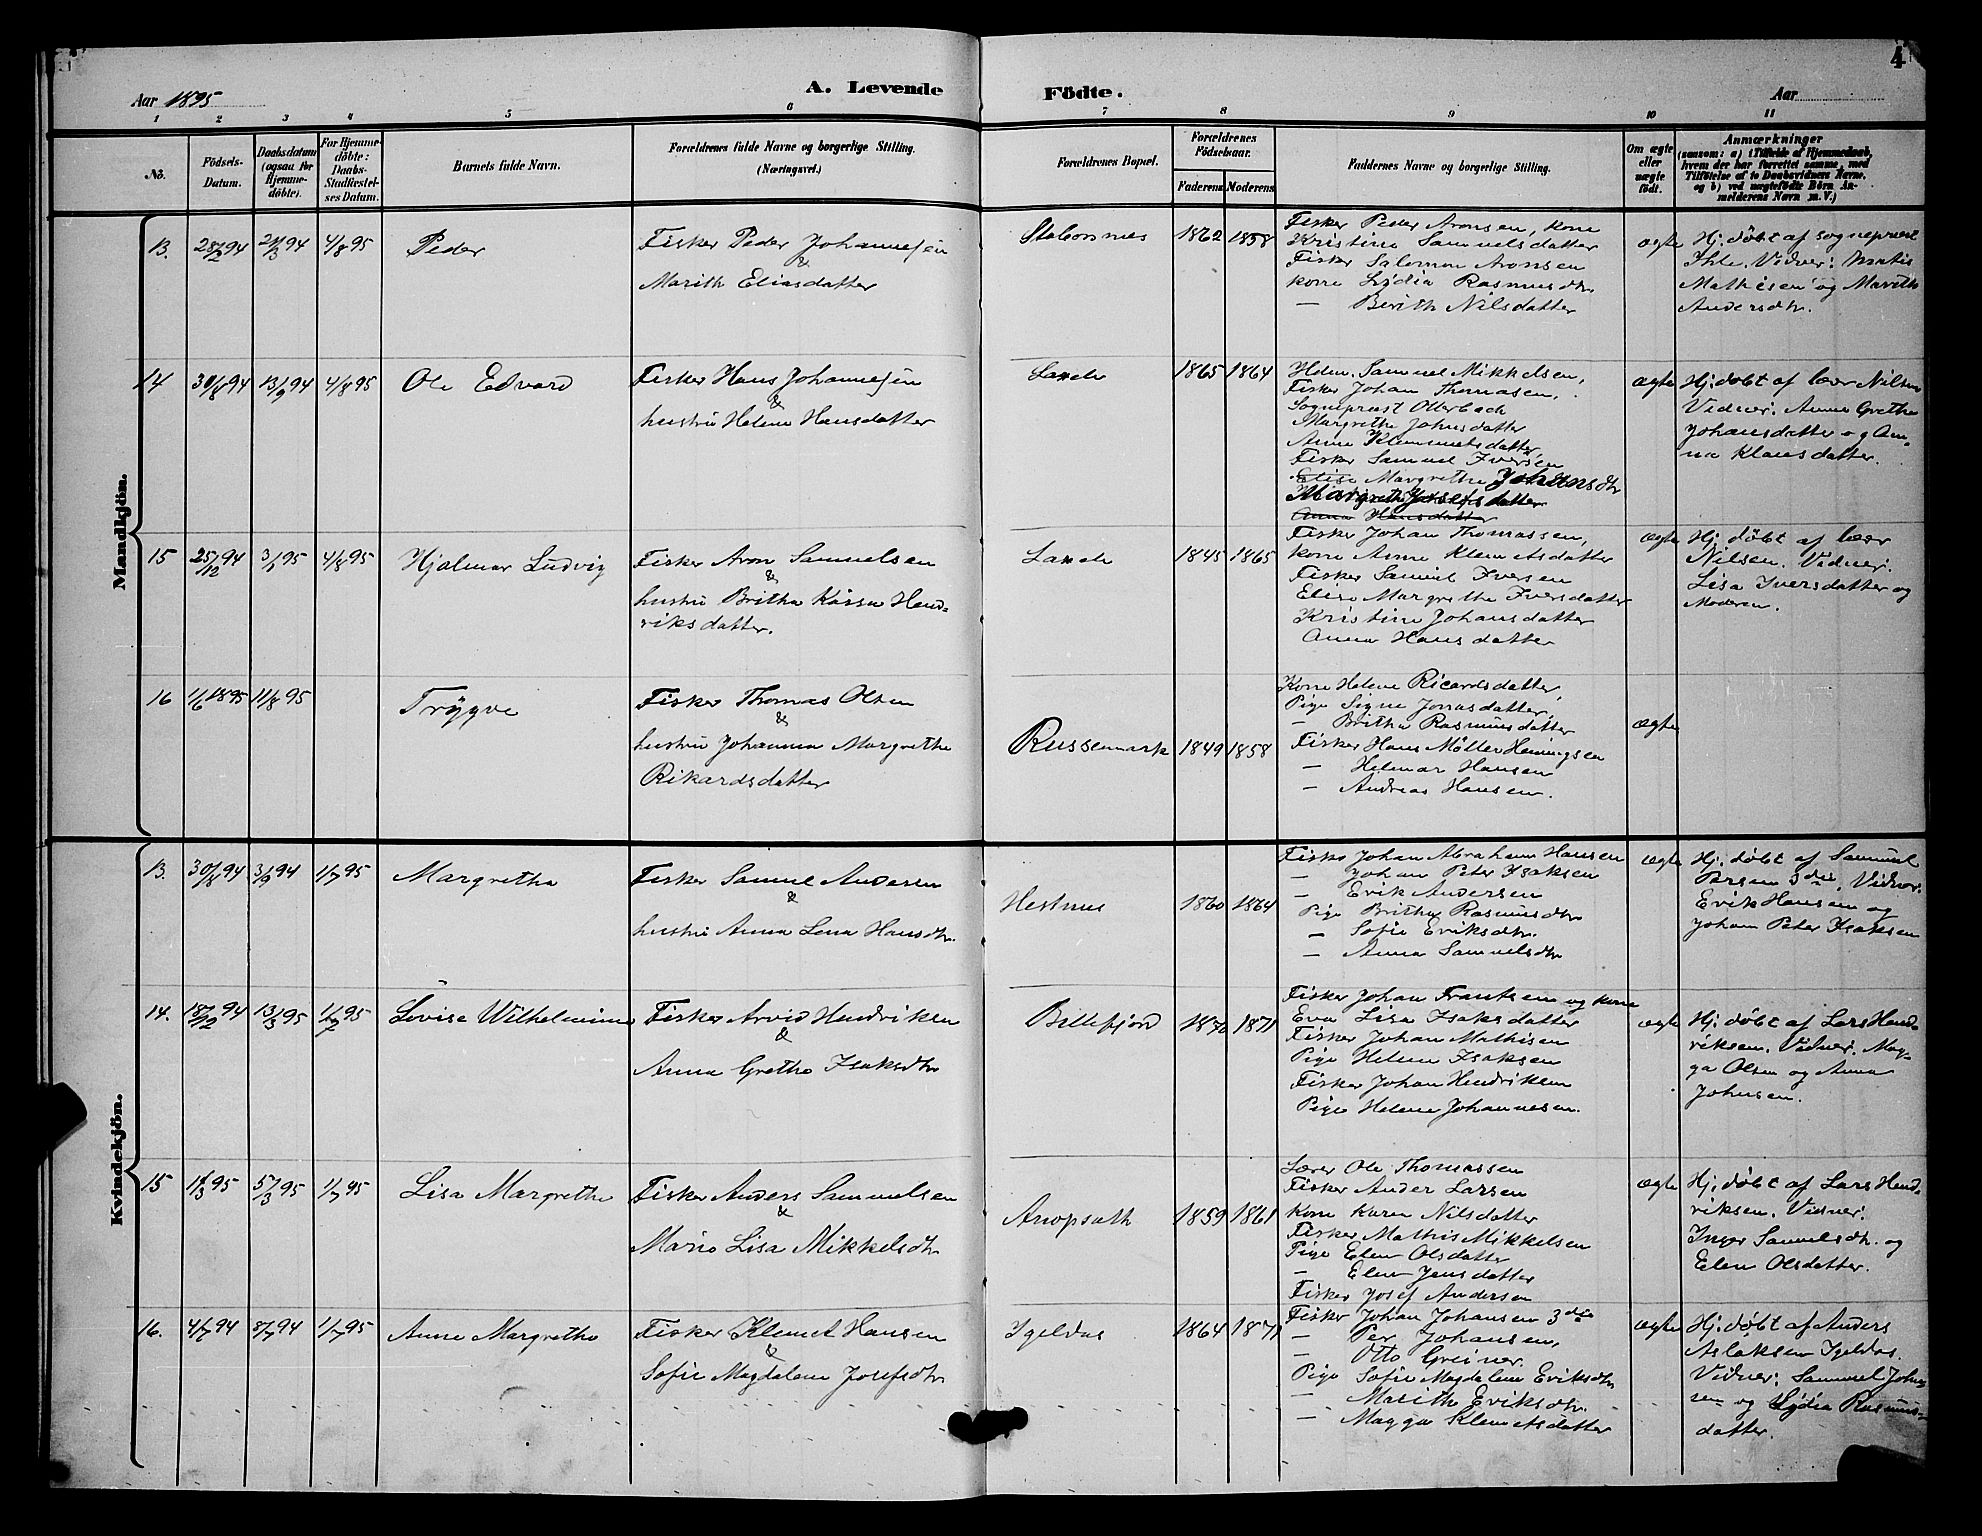 4
Aar 1895
A. Levende Födte.
Aar
1 2 3 4 5 6 7 8 9 10 11
No.
Födsels-Datum.
Daabsdatum (ogsaa for Hjemme-döbte).
For Hjemme-döbte: Daabs-Stadfæstel-ses Datum.
Barnets fulde Navn.
Forældrenes fulde Navne og borgerlige Stilling. (Næringsvei.)
Forældrenes Bopæl.
Forældrenes Födselsaar.
Faderens Moderens
Faddernes Navne og borgerlige Stilling.
Om ægte eller uægte födt.
Anmærkninger
(saasom: a) i Tilfælde af Hjemmedaab,
hvem der har forrettet samme, med
Tilföielse af to Daabsvidners Navne,
og b) ved uægtefödte Börn An-
melderens Navn m. V.)
Mandkjön.
13. 28/2 94 24/3 94 4/8 95
Peder
Fisker Peder Johannesen
&
Marith Eliasdatter
1862 1858
Fisker Peder Aronsen, kone
Kristine Samuelsdatter
Fisker Salomon Aronsen
kone Lydia Rasmusdtr.
— Berith Nilsdatter
ægte
Hj. döbt af sogneprest
Ihle. Vidner: Matis
Mathisen og Marith
Andersdtr.
14 30/8 94 13/9 94 4/8 95
Ole Edvard
Fisker Hans Johannesen
&
hustru Helene Hansdatter
1865 1864
Samuel Mikkelsen,
Fisker Johan Thomasen,
Sogneprest Otterbech
Margrethe Johnsdatter
Anna Klemmetsdatter,
Fisker Samuel Iversen
Elise Margrethe Johansdtr
Margrethe Josefsdatter
Anna Hansdatter
ægte
Hj. döbt af lær Nilsen
Vidner: Anne Grethe
Johansdatter og An-
na Klausdatter.
15 25/12 94 3/1 95 4/8 95
Hjalmar Ludvig
Fisker Aron Samuelsen
&
hustru Britha Kaisa Hend-
riksdatter.
1845 1865
Fisker Johan Thomassen,
kone Anne Klemetsdatter
Fisker Samuel Iversen
Elise Margrethe Iversdatter
Kristine Johansdatter
Anna Hansdatter
ægte
Hj. döbt af lær
Nilsen. Vidner:
Lisa Iversdatter og
Moderen.
16 1/6 1895 11/8 95
Trygve
Fisker Thomas Olsen
&
hustru Johanna Margrethe
Rikardsdatter
Russemark
1849 1858
Kone Helene Ricardsdatter,
Pige Signe Jonasdatter,
— Britha Rasmusdatter
Fisker Hans Möller Henningsen
— Helmar Hansen
— Andreas Hansen.
ægte
Kvindekjön.
13. 30/8 94 3/9 94 1/7 95
Margretha
Fisker Samuel Andersen
&
hustru Anna Lena Hansdtr.
Hestnes
1860 1864
Fisker Johan Abraham Hansen
— Johan Peter Isaksen
— Erik Andersen
Pige Britha Rasmusdtr
— Sofie Eriksdtr.
— Anna Samuelsdtr
ægte
Hj. döbt af Samuel
Persen 3die, Vidner:
Erik Hansen og
Johan Peter Isaksen
14. 18/12 94 13/3 95 1/7 95
Lovise Wilhelmine
Fisker Arvid Hendriksen
&
Anna Grethe Isaksdtr
Billefjord
1872 1871
Fisker Johan Frantsen og kone
Eva Lisa Isaksdatter
Fisker Johan Mathisen
Pige Helene Isaksen
Fisker Johan Hendriksen
Pige Helene Johannesen.
ægte
Hj. döbt af Lars Hend-
riksen. Vidner: Mag-
ga Olsen og Anna
Johnsen.
15 1/3 95 5/3 95 1/7 95
Lisa Margrethe
Fisker Anders Samuelsen
&
Marie Lisa Mikkelsdtr
1859 1861
Lærer Ole Thomassen
Fisker Ander Larsen
Kone Karen Nilsdatter
Fisker Mathis Mikkelsen
Pige Elen Olsdatter
— Elen Jensdatter
Fisker Josef Andersen
ægte
Hj. döbt af Lars Hend-
riksen. Vidner:
Inger Samuelsdtr. og
Elen Olsdatter.
16. 4/7 94 8/7 94 1/7 95
Anne Margrethe
Fisker Klemet Hansen
&
Sofie Magdalene Josefsdtr
Igeldas
1864 1871
Fisker Johan Johansen 3die
— Per Johansen,
— Otto Greiner.
Pige Sofie Magdalene Eriksdtr
— Marith Eriksdtr.
— Magga Klemetsdatter
ægte
Hj. döbt af Anders
Aslaksen Igeldas.
Vidner: Samuel Johan-
sen og Lydia Rasmus-
datter.